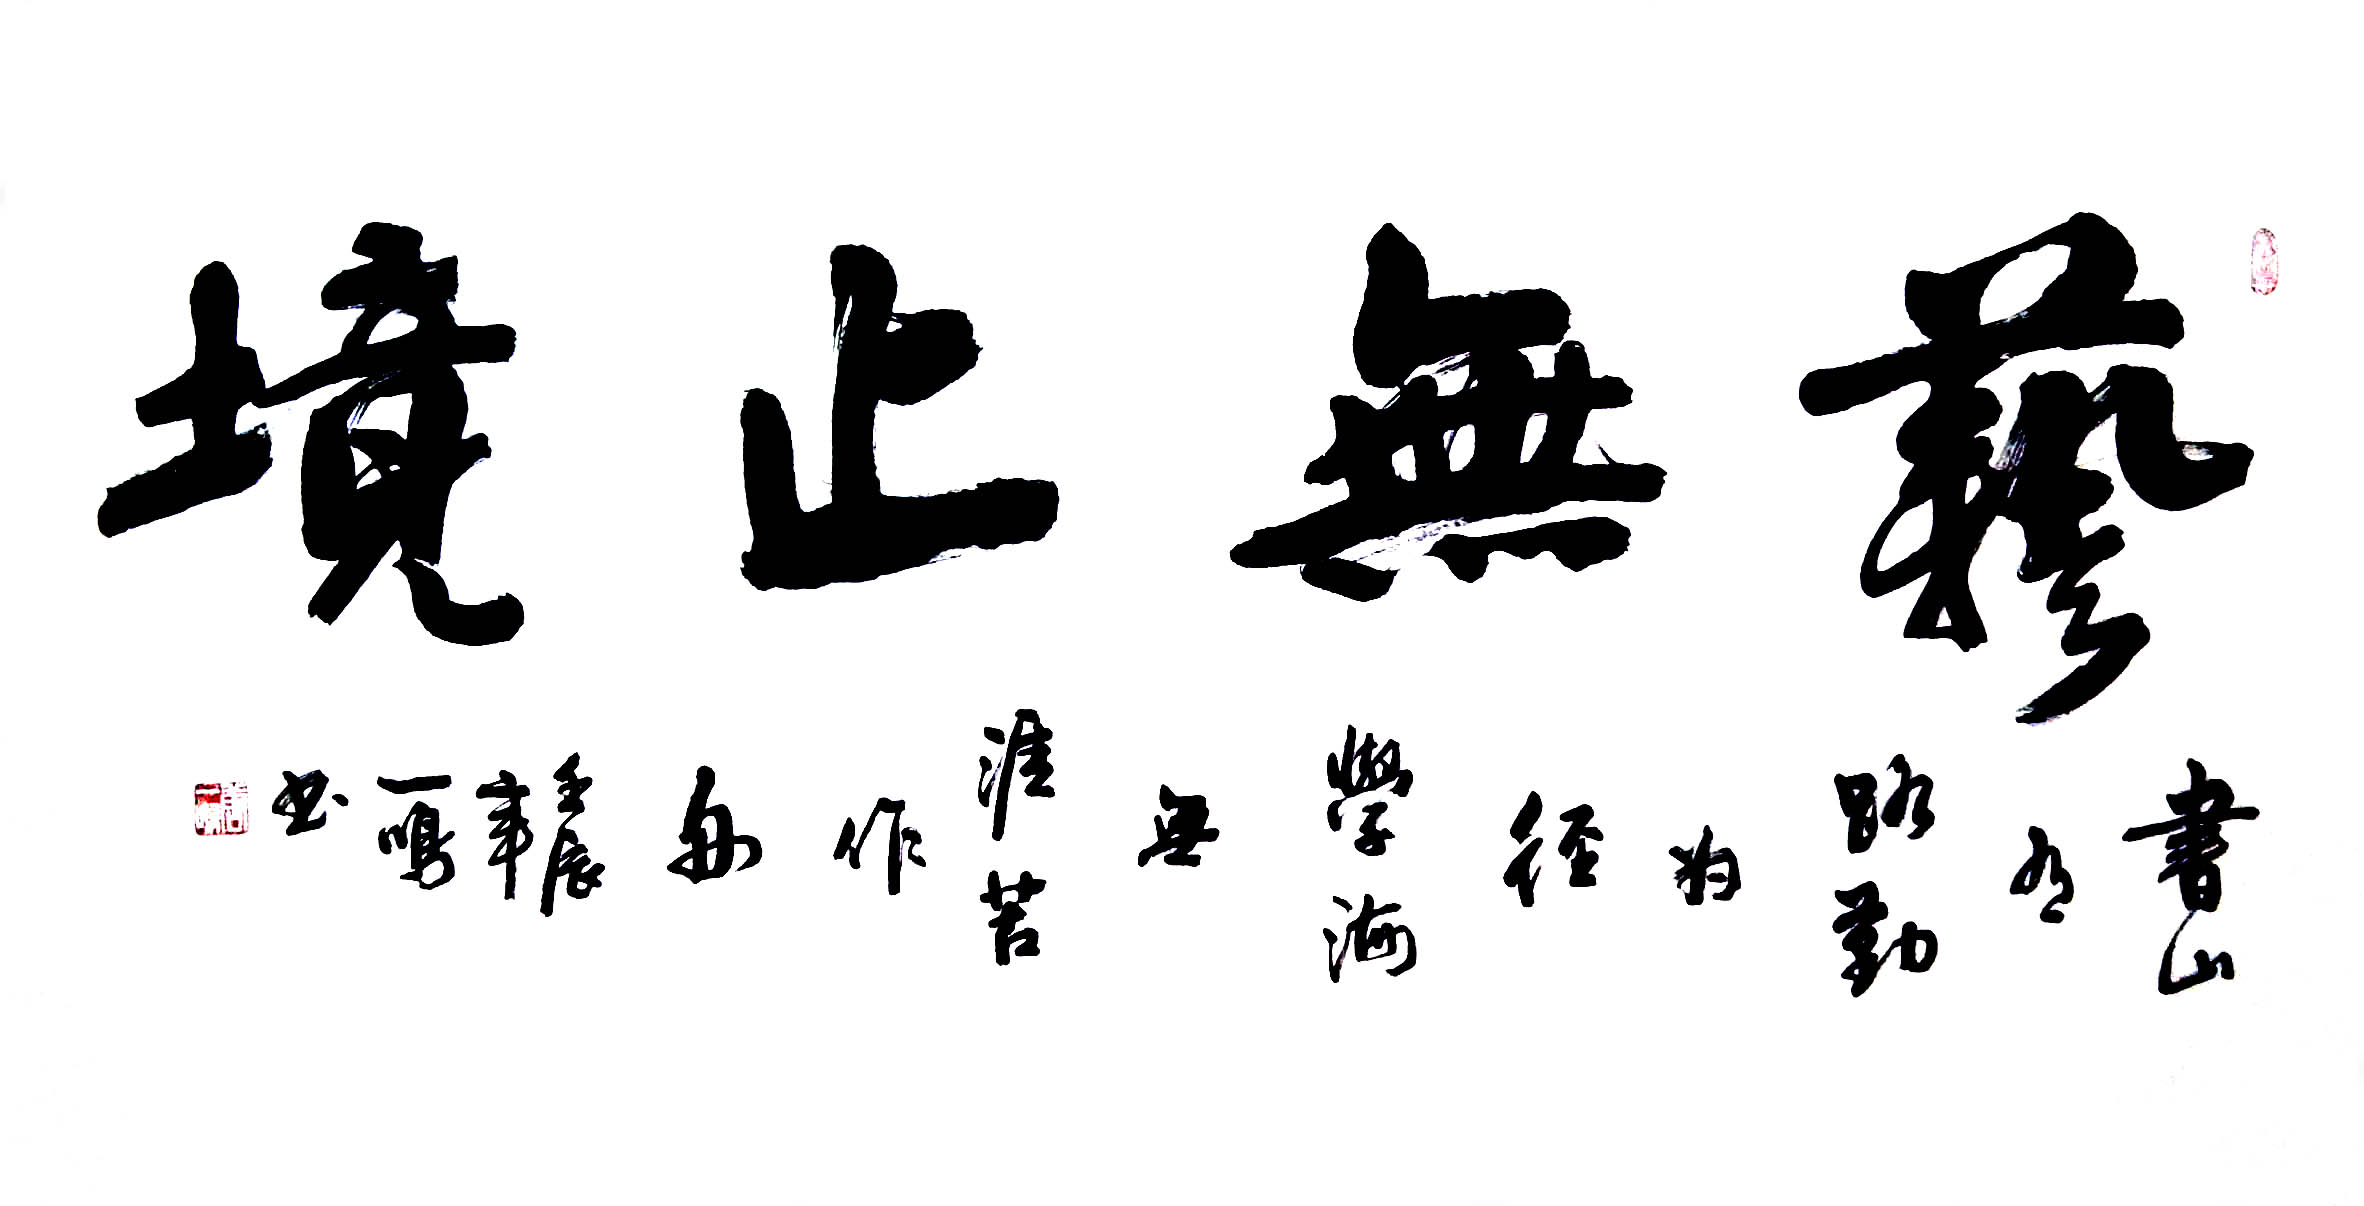 藝無止境
書山有路勤為徑學海無涯苦作舟
壬辰章一鳴书